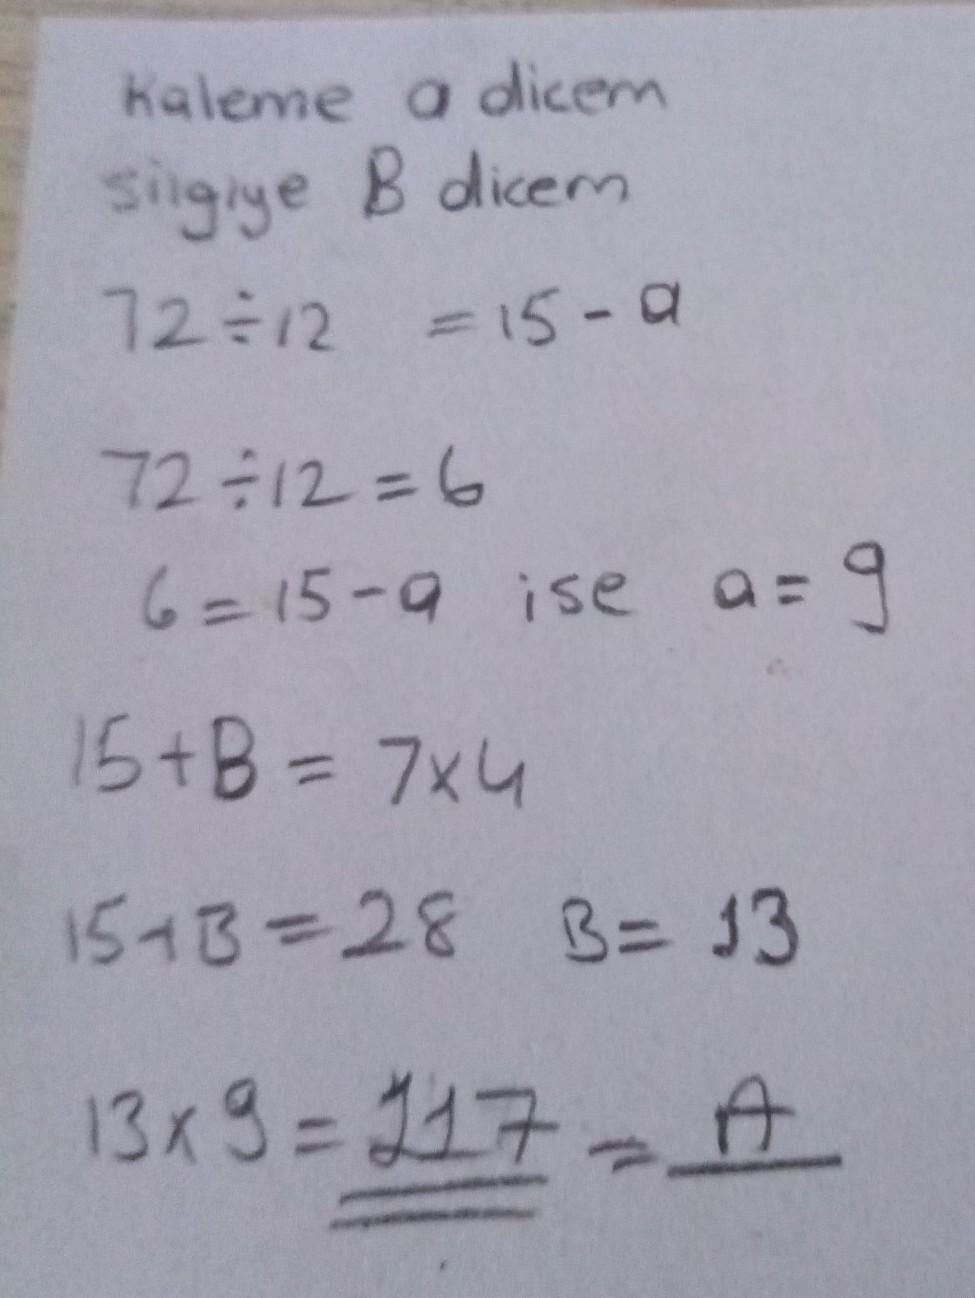 Kaleme a dicem
silgiye B dicem
72÷12 = 15 - a
72÷12 = 6
6 = 15 - a ise a = 9
15+B = 7x4
15+B = 28 B = 13
13 x 9 = 117 = A